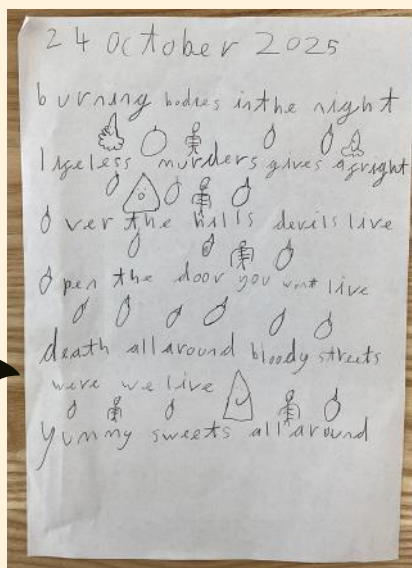 24 October 2025
burning bodies in the night
lifeless murders gives a fright
Over the hills devils live
Open the door you wont live
death all around bloody streets
were we live
yummy sweets all around